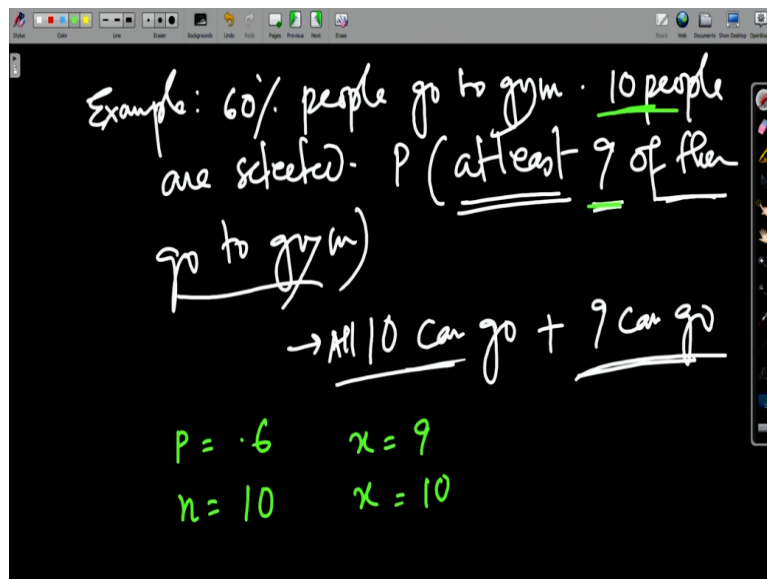 Stylus Color Line Eraser Backgrounds Undo Redo Pages Previous Next Erase Board Web Documents Show Desktop
Example: 60% people go to gym. 10 people
are selected. P (atleast 9 of them
go to gym)
→ All 10 can go + 9 can go
P = .6 x = 9
n = 10 x = 10